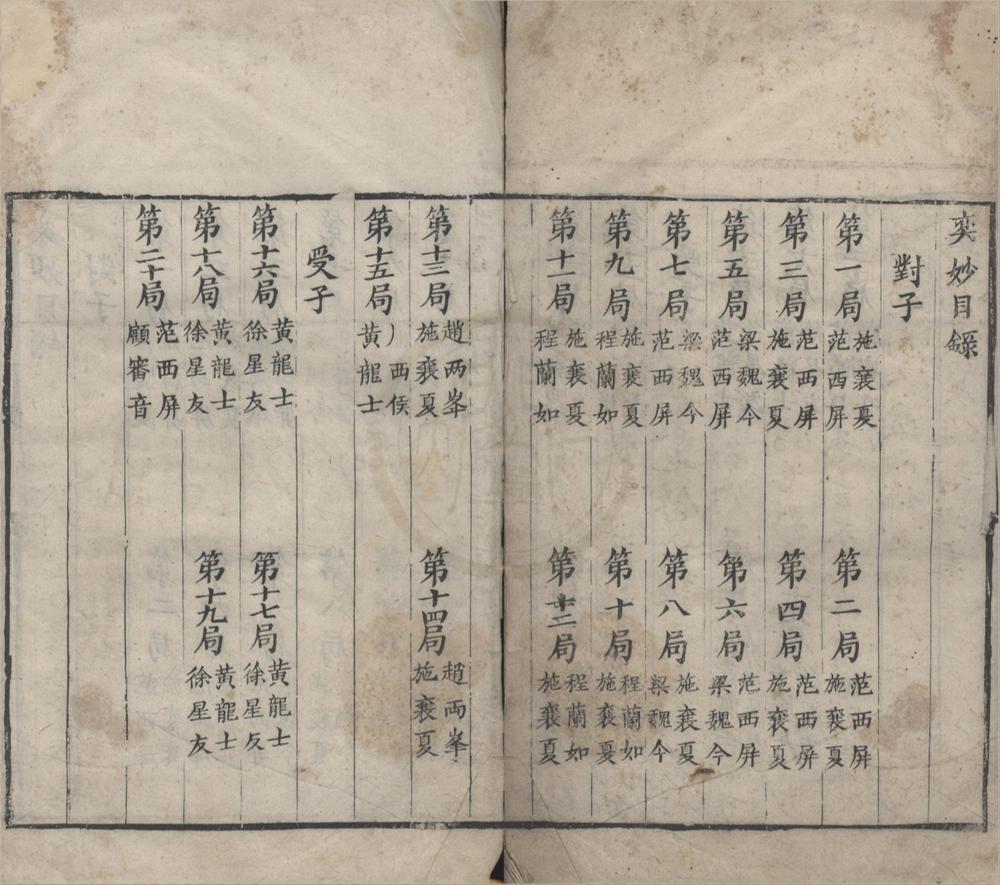 奕妙目錄
對子
第一局 施襄夏 范西屏
第二局 范西屏 施襄夏
第三局 范西屏 施襄夏
第四局 范西屏 施襄夏
第五局 梁魏今 范西屏
第六局 范西屏 梁魏今
第七局 梁魏今 范西屏
第八局 施襄夏 梁魏今
第九局 施襄夏 程蘭如
第十局 程蘭如 施襄夏
第十一局 施襄夏 程蘭如
第十二局 程蘭如 施襄夏
第十三局 趙两峯 施襄夏
第十四局 趙両峯 施襄夏
第十五局 西侯 黄龍士
受子
第十六局 黄龍士 徐星友
第十七局 黄龍士 徐星友
第十八局 黄龍士 徐星友
第十九局 黄龍士 徐星友
第二十局 范西屏 顧審音